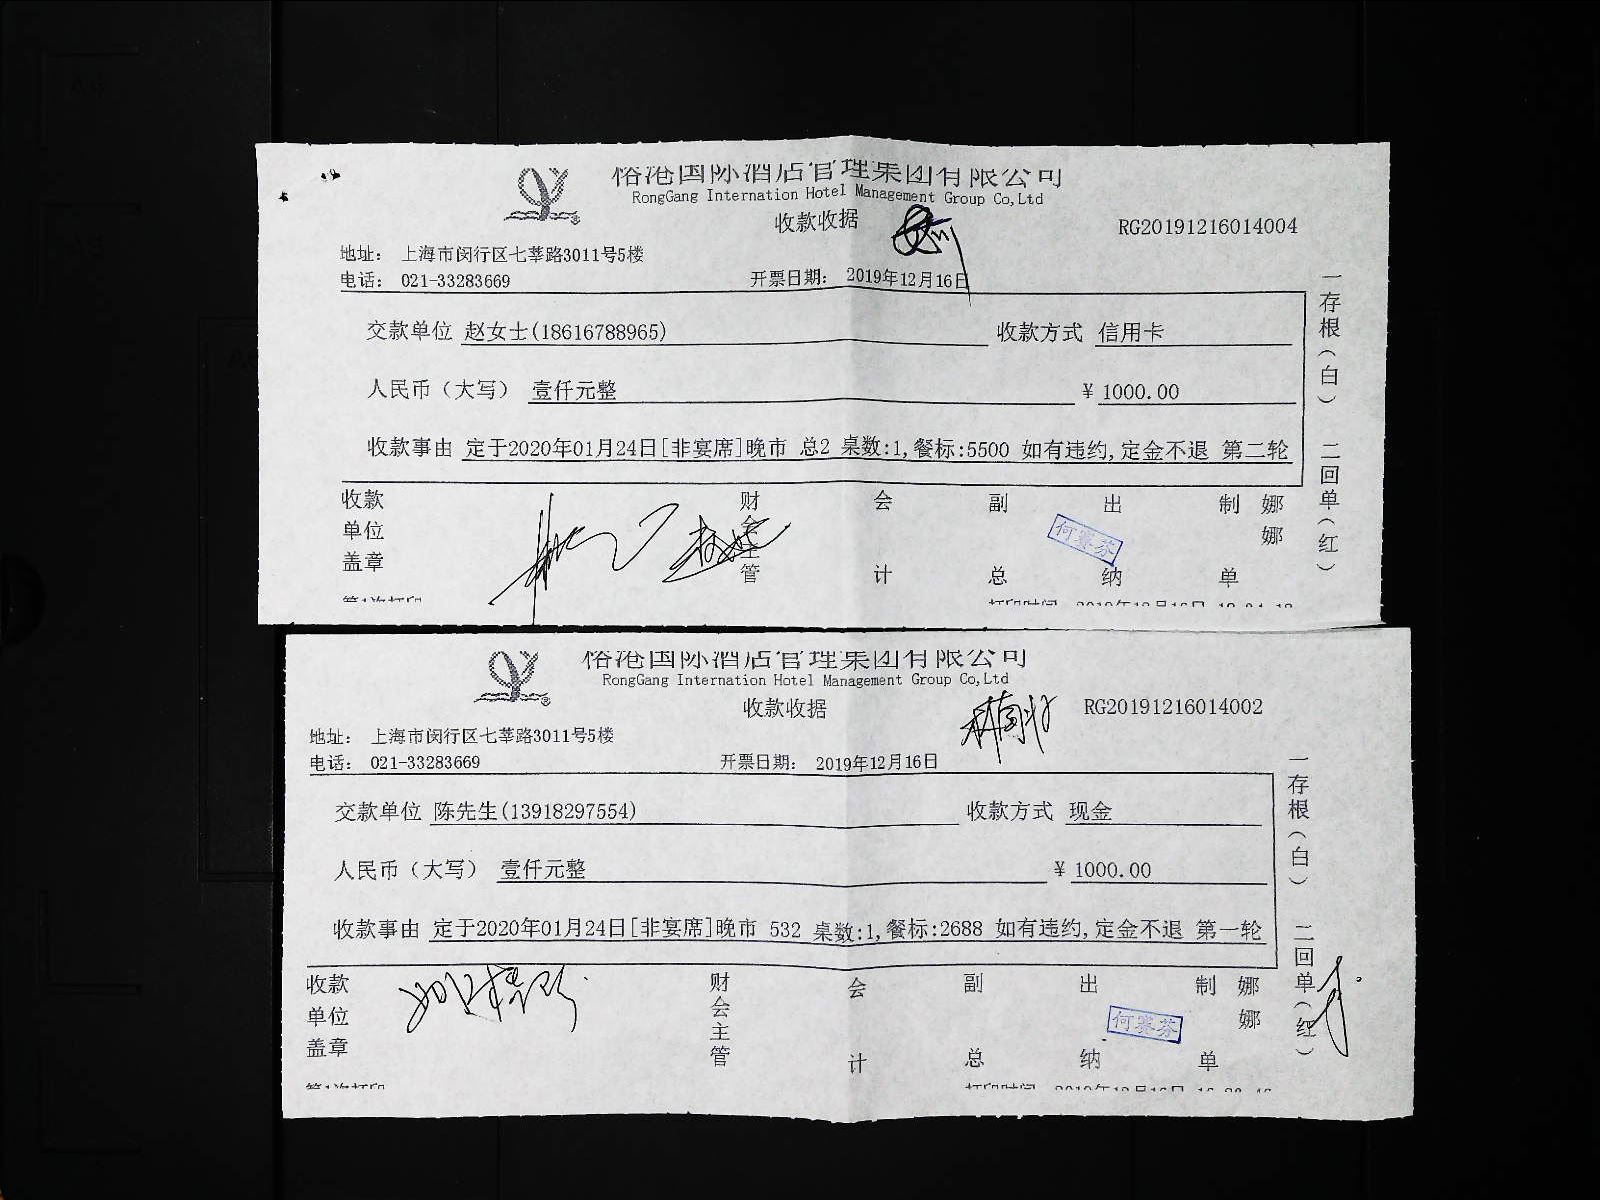 裕港国际酒店管理集团有限公司
RongGang Internation Hotel Management Group Co,Ltd
收款收据
RG20191216014004
地址： 上海市闵行区七莘路3011号5楼
电话： 021-33283669 开票日期： 2019年12月16日
交款单位 赵女士(18616788965) 收款方式 信用卡
人民币（大写） 壹仟元整 ¥ 1000.00
收款事由 定于2020年01月24日[非宴席]晚市 总2 桌数:1,餐标:5500 如有违约,定金不退 第二轮
收款单位盖章 财会主管 会计 副总 出纳 何赛芬 制单 娜娜
一存根（白） 二回单（红）
第1次打印
裕港国际酒店管理集团有限公司
RongGang Internation Hotel Management Group Co,Ltd
收款收据
RG20191216014002
地址： 上海市闵行区七莘路3011号5楼
电话： 021-33283669 开票日期： 2019年12月16日
交款单位 陈先生(13918297554) 收款方式 现金
人民币（大写） 壹仟元整 ¥ 1000.00
收款事由 定于2020年01月24日[非宴席]晚市 532 桌数:1,餐标:2688 如有违约,定金不退 第一轮
收款单位盖章 财会主管 会计 副总 出纳 何赛芬 制单 娜娜
一存根（白） 二回单（红）
第1次打印